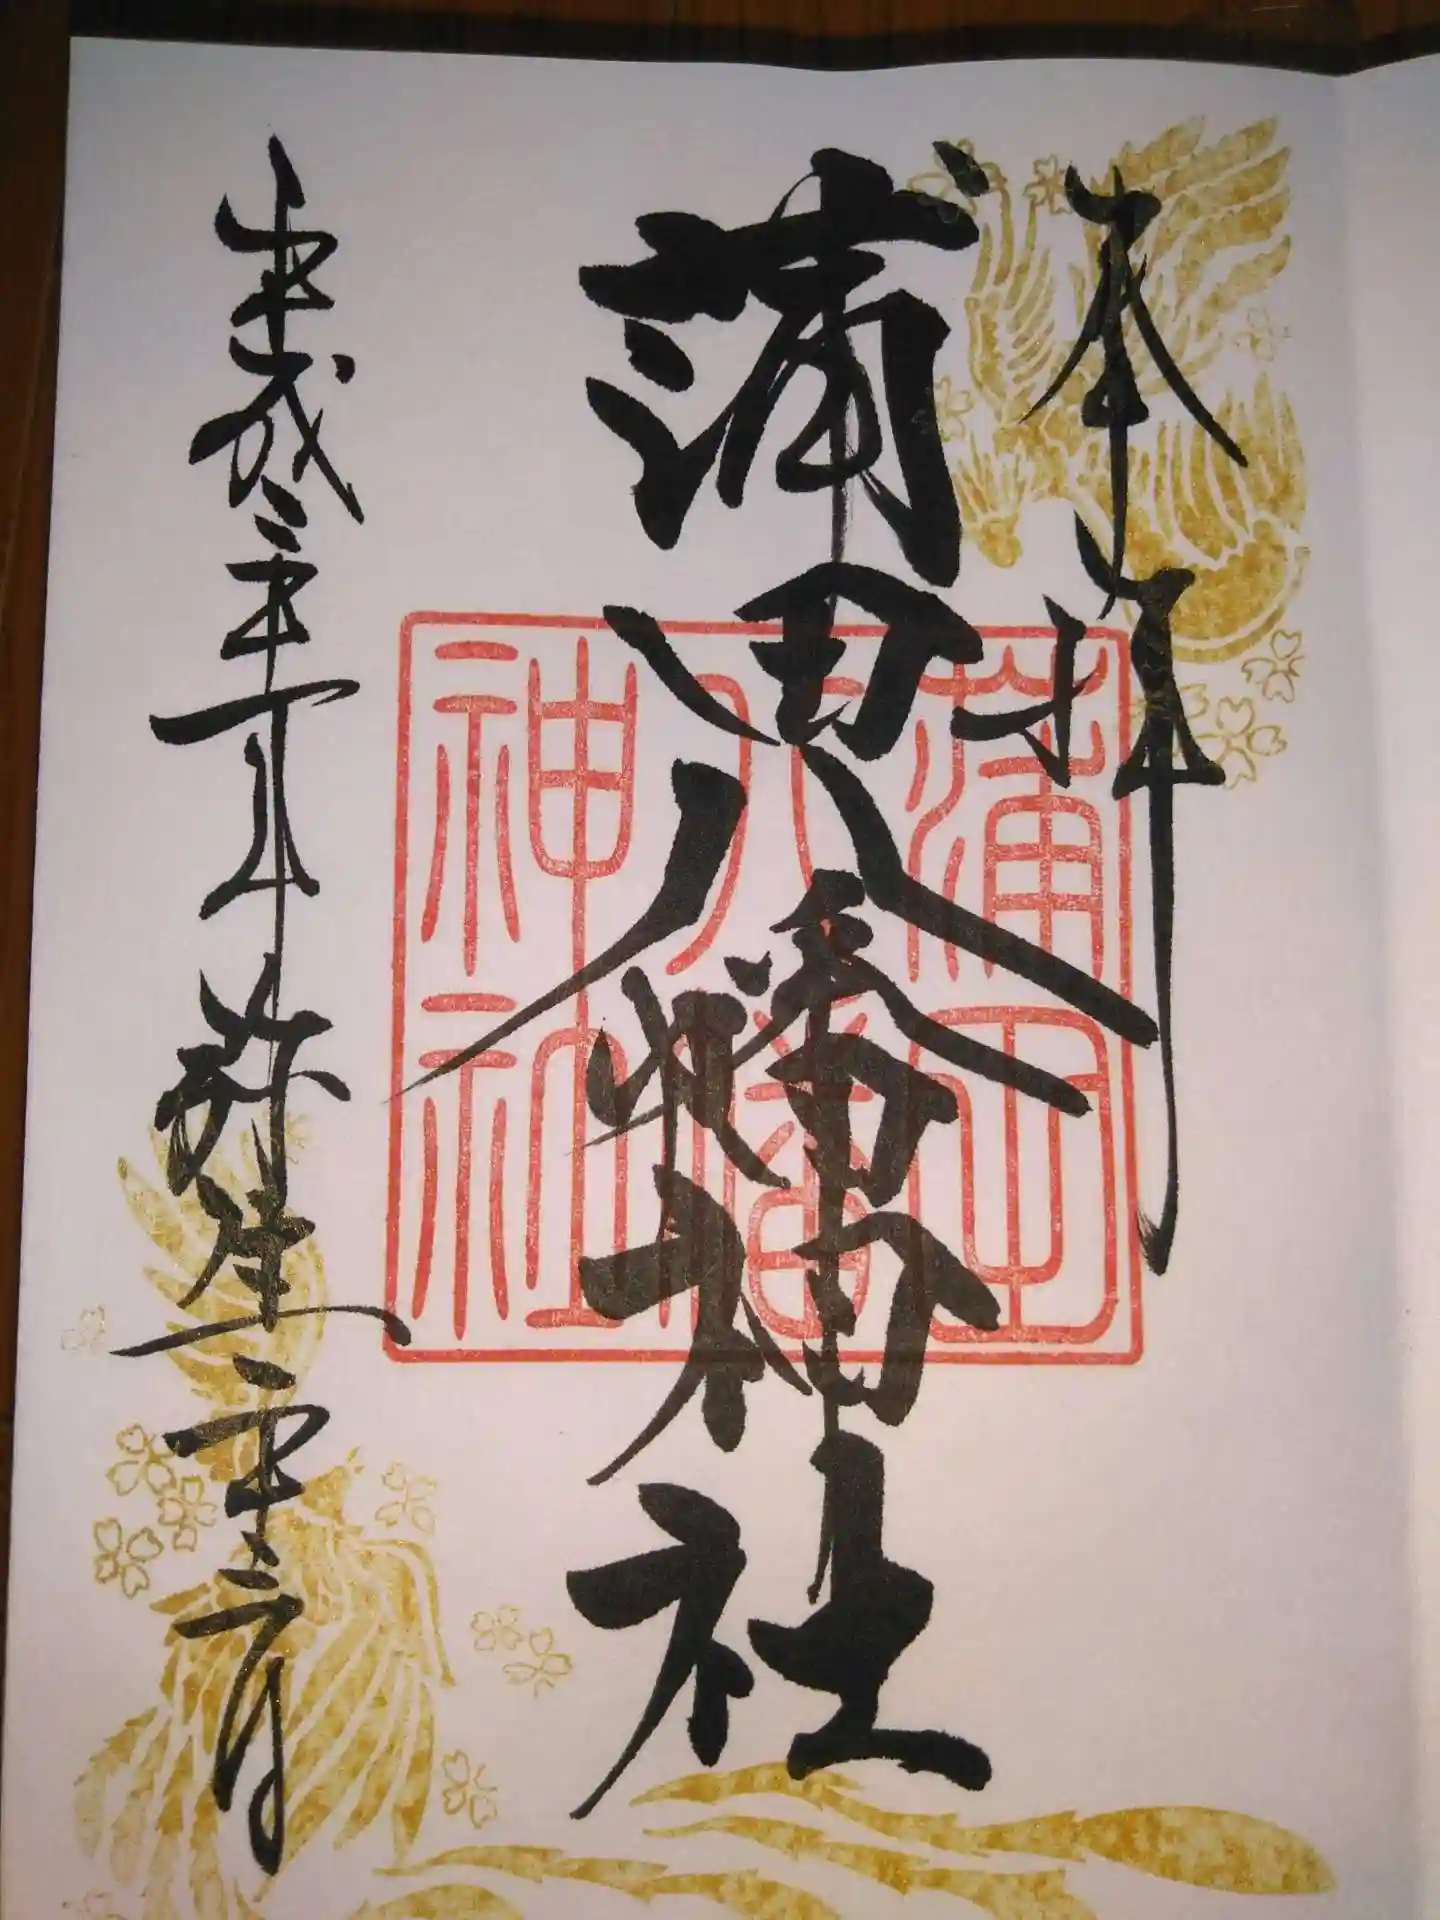 奉拝
蒲田八幡神社
蒲田
八幡
神社
平成三十一年弥生二十三日